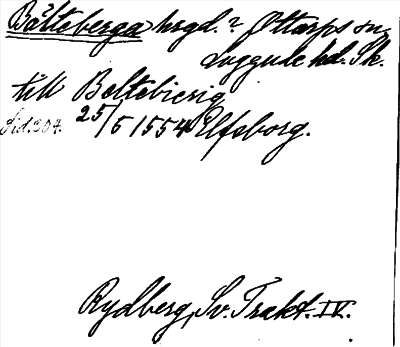 Bälteberga hrgd.? Ottarps sn,
Luggude hd. Sk.
till Beltebierig
Sid. 307. 25/6 1554 Elfsborg.
Rydberg, Sv. Trakt. IV.